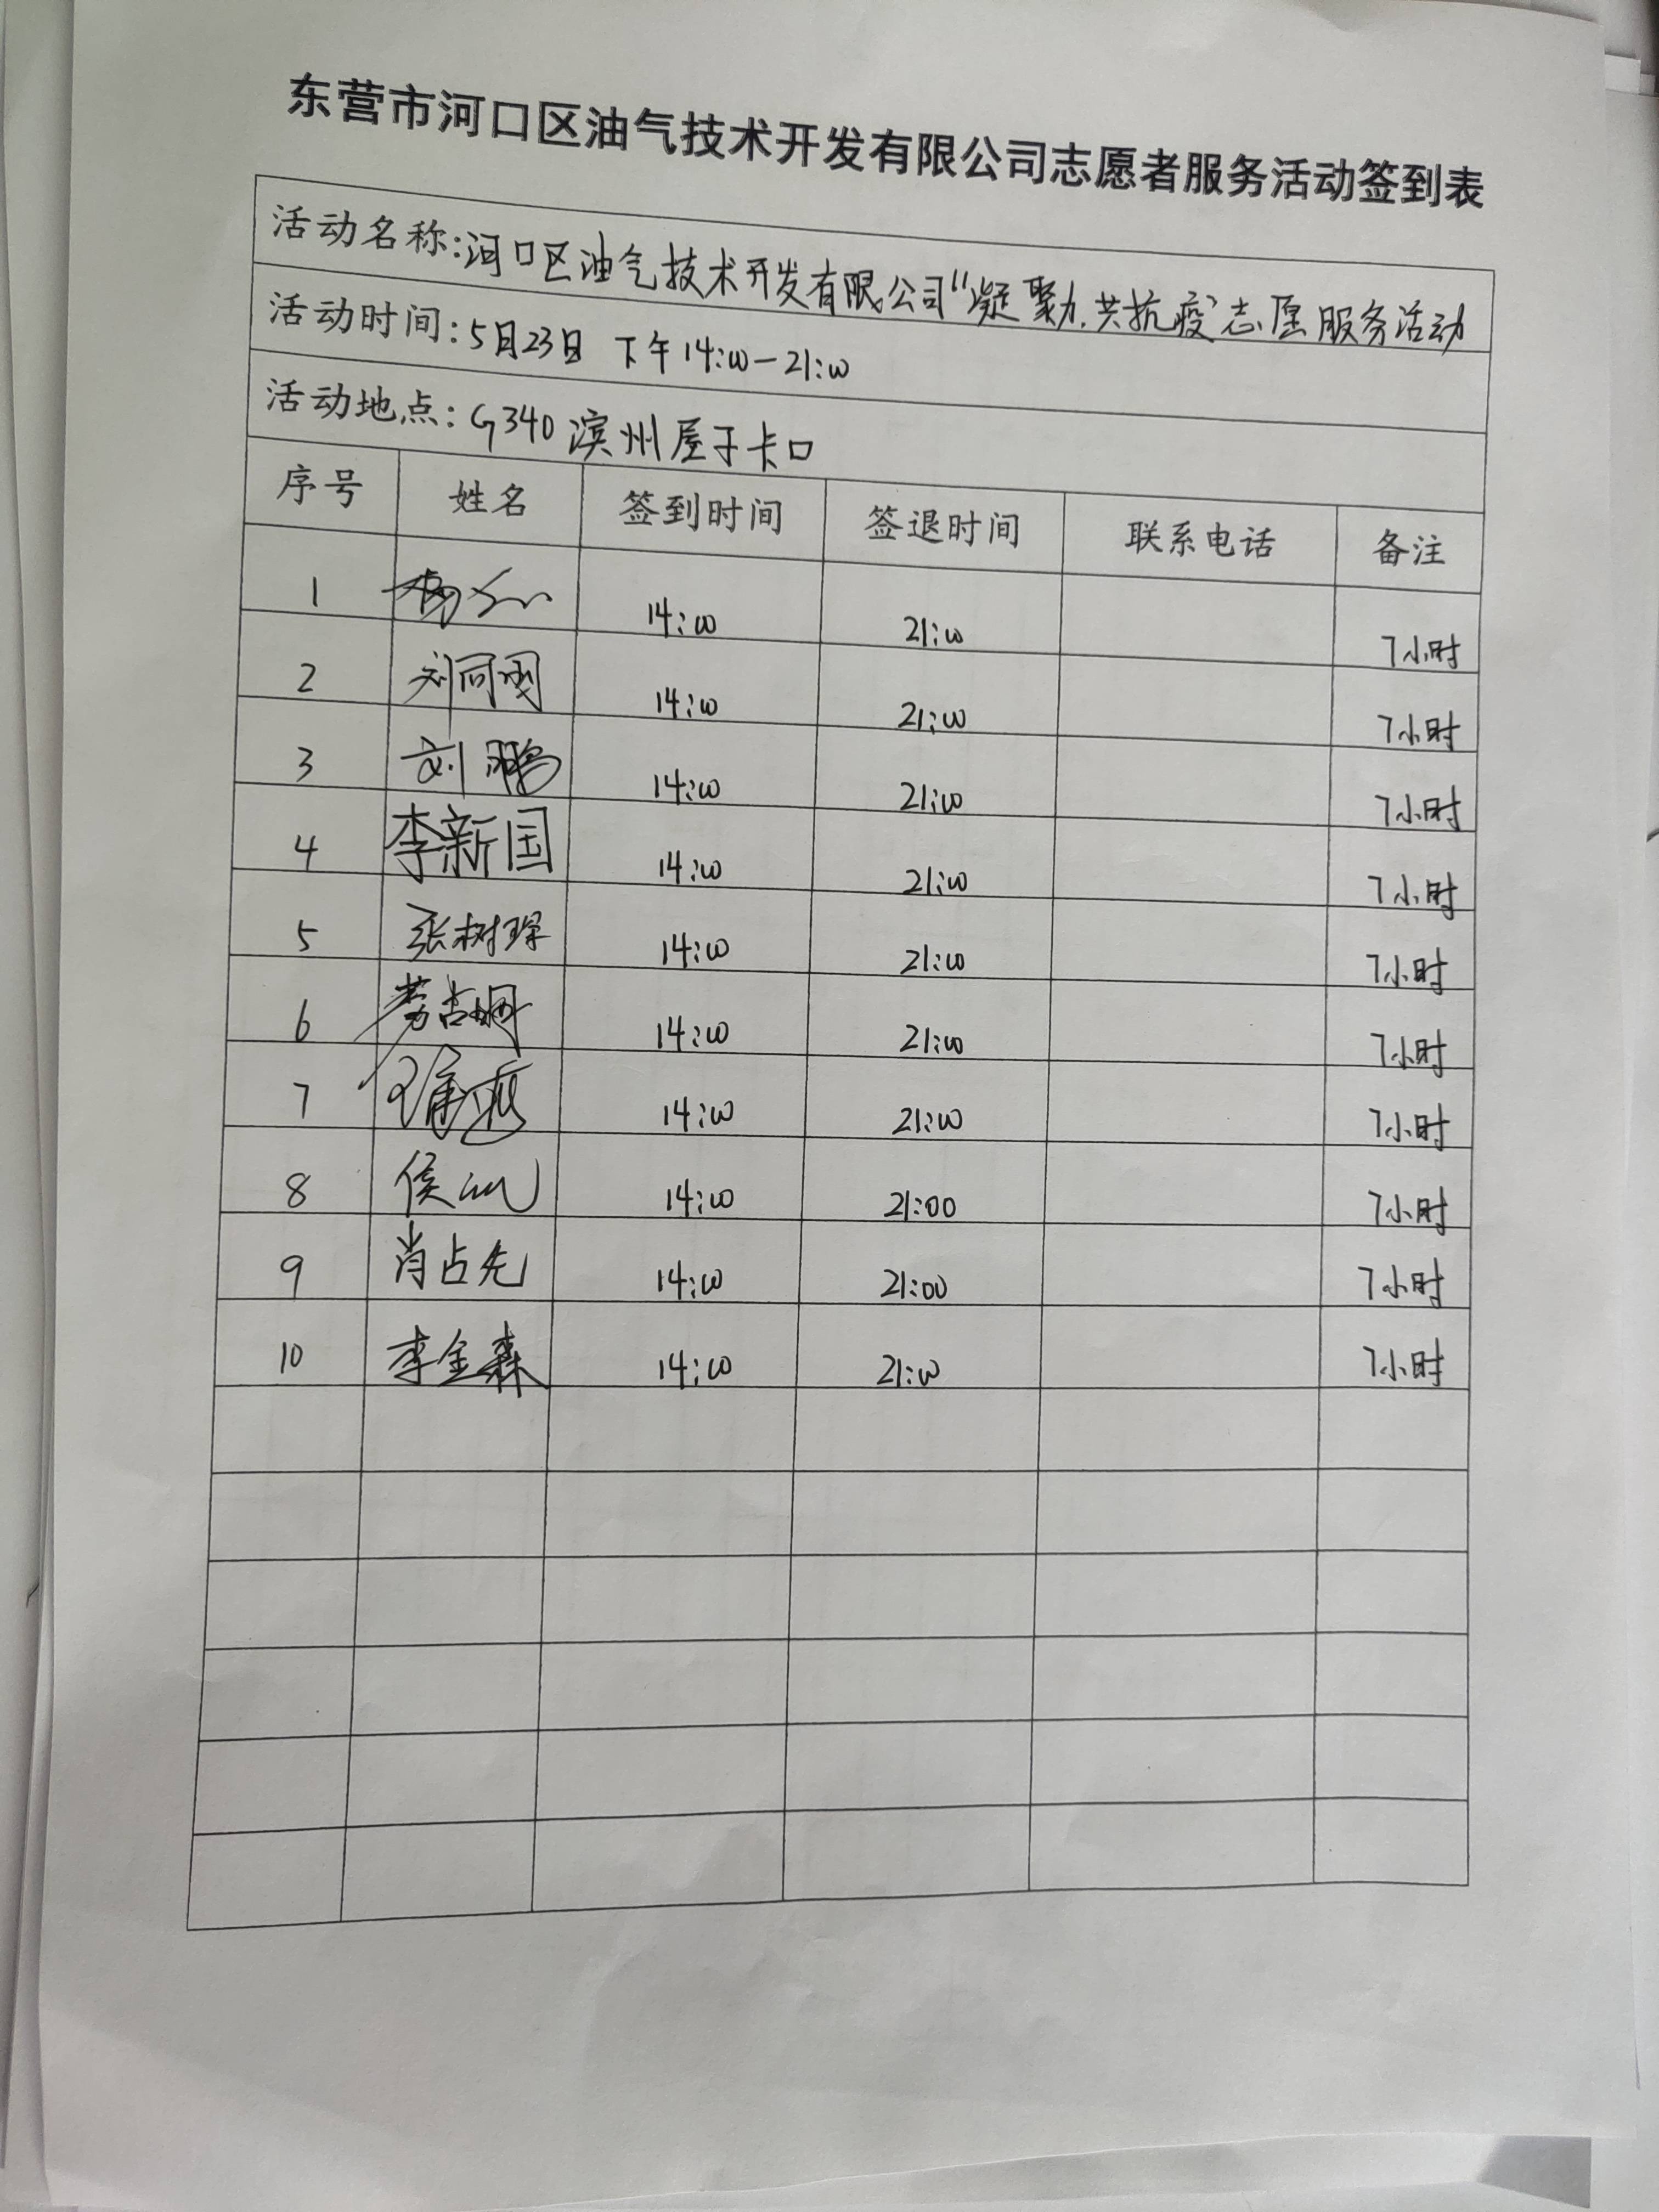 东营市河口区油气技术开发有限公司志愿者服务活动签到表
活动名称:河口区油气技术开发有限公司“凝聚力.共抗疫”志愿服务活动
活动时间:5月23日 下午14:00-21:00
活动地点:G340滨州屋子卡口
序号 姓名 签到时间 签退时间 联系电话 备注
1 14:00 21:00 7小时
2 14:00 21:00 7小时
3 刘鹏 14:00 21:00 7小时
4 李新国 14:00 21:00 7小时
5 张树琛 14:00 21:00 7小时
6 14:00 21:00 7小时
7 14:00 21:00 7小时
8 侯 14:00 21:00 7小时
9 肖占先 14:00 21:00 7小时
10 李金森 14:00 21:00 7小时